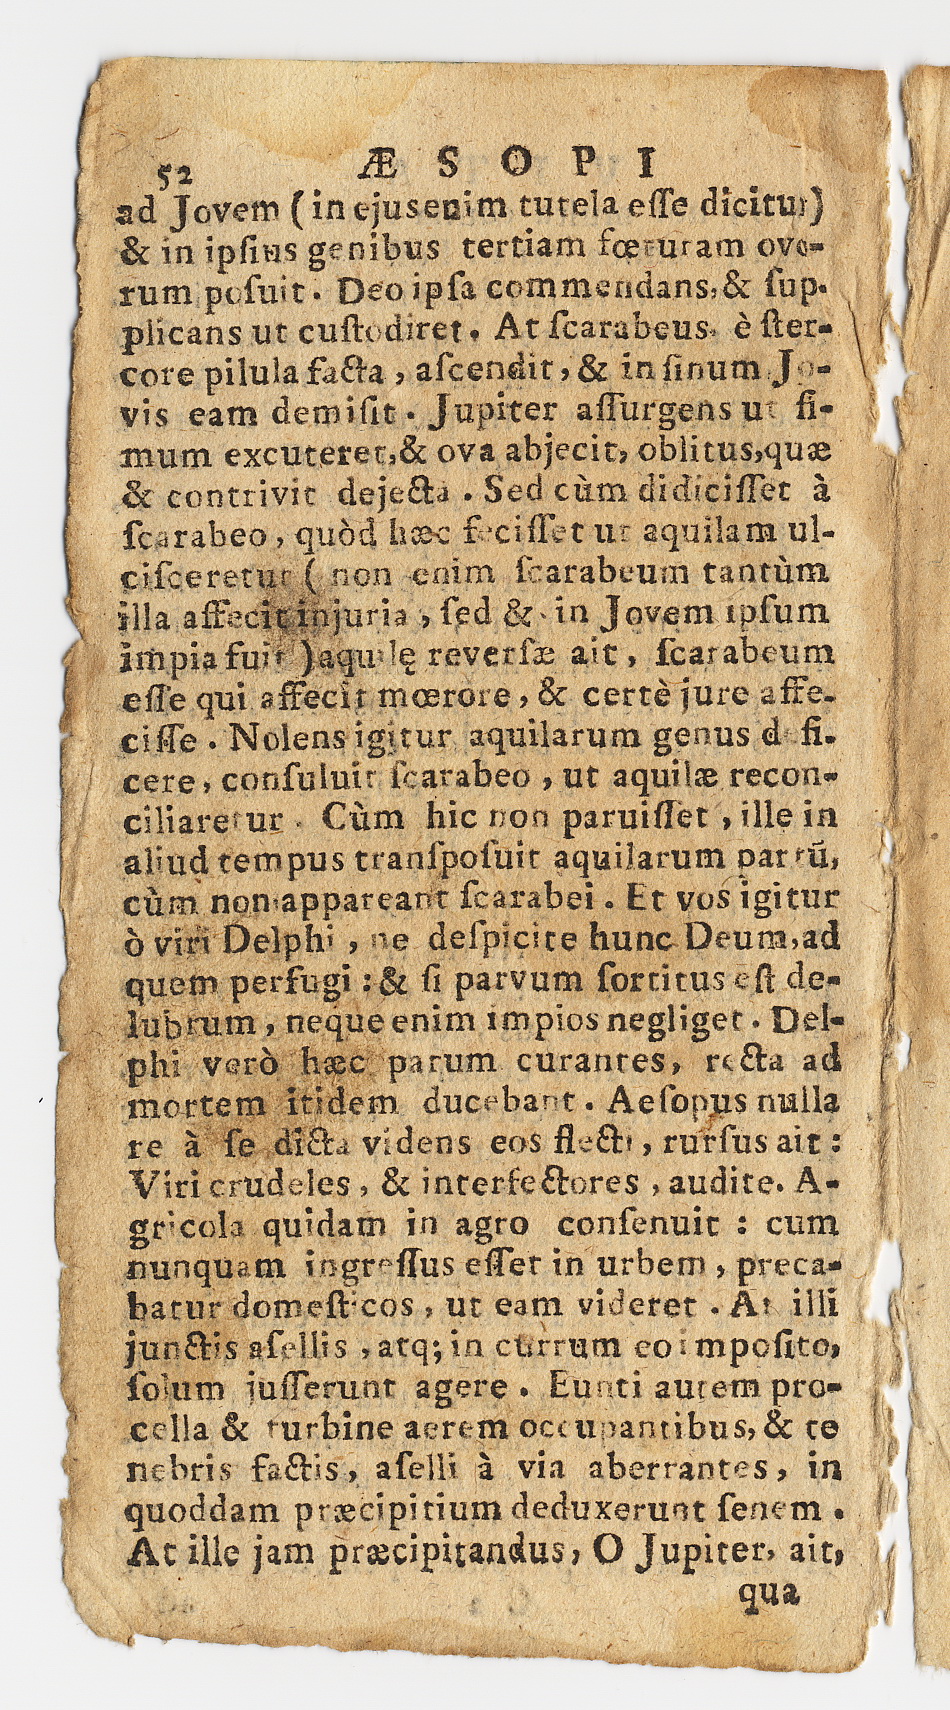 52 Æ S O P I
ad Jovem (in ejus enim tutela eſſe dicitur)
& in ipſius genibus tertiam fœturam ovo-
rum poſuit. Deo ipſa commendans, & ſup-
plicans ut cuſtodiret. At ſcarabeus è ſter-
core pilula facta, aſcendit, & in ſinum Jo-
vis eam demiſit. Jupiter aſſurgens ut fi-
mum excuteret, & ova abjecit, oblitus, quæ
& contrivit dejecta. Sed cùm didiciſſet à
ſcarabeo, quòd hæc feciſſet ut aquilam ul-
ciſceretur (non enim ſcarabeum tantùm
illa affecit injuria, ſed & in Jovem ipſum
impia fuit) aquilę reverſæ ait, ſcarabeum
eſſe qui affecit mœrore, & certè jure affe-
ciſſe. Nolens igitur aquilarum genus defi-
cere, conſuluit ſcarabeo, ut aquilæ recon-
ciliaretur. Cùm hic non paruiſſet, ille in
aliud tempus tranſpoſuit aquilarum partũ,
cùm non appareant ſcarabei. Et vos igitur
ò viri Delphi, ne deſpicite hunc Deum, ad
quem perfugi: & ſi parvum ſortitus eſt de-
lubrum, neque enim impios negliget. Del-
phi verò hæc parum curantes, recta ad
mortem itidem ducebant. Aeſopus nulla
re à ſe dicta videns eos flecti, rurſus ait:
Viri crudeles, & interfectores, audite. A-
gricola quidam in agro conſenuit: cum
nunquam ingreſſus eſſet in urbem, preca-
batur domeſticos, ut eam videret. At illi
junctis aſellis, atq; in currum eo impoſito,
ſolum juſſerunt agere. Eunti autem pro-
cella & turbine aerem occupantibus, & te
nebris factis, aſelli à via aberrantes, in
quoddam præcipitium deduxerunt ſenem.
At ille jam præcipitandus, O Jupiter, ait,
qua